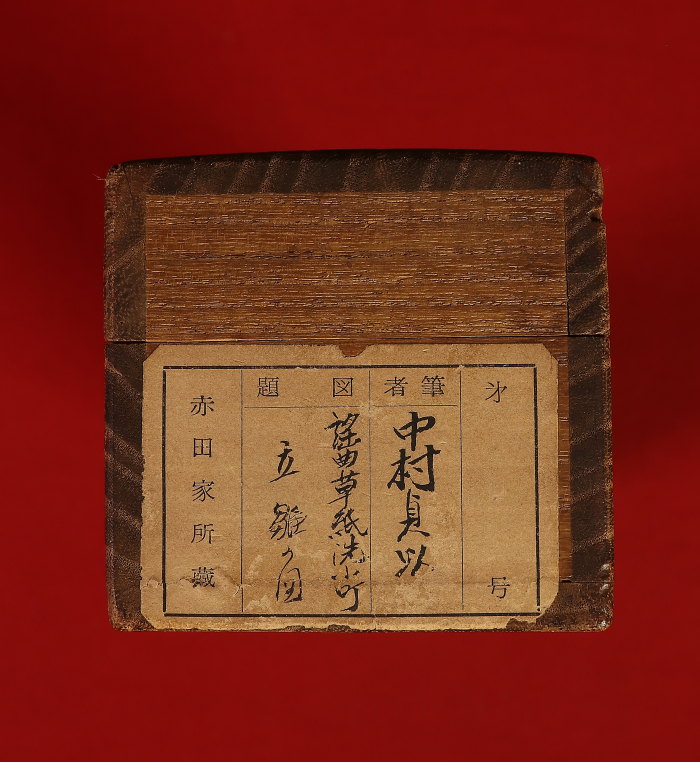 㐧 号
筆者
中村貞以
図題
謡曲草紙洗小町
立雛の図
赤田家所蔵